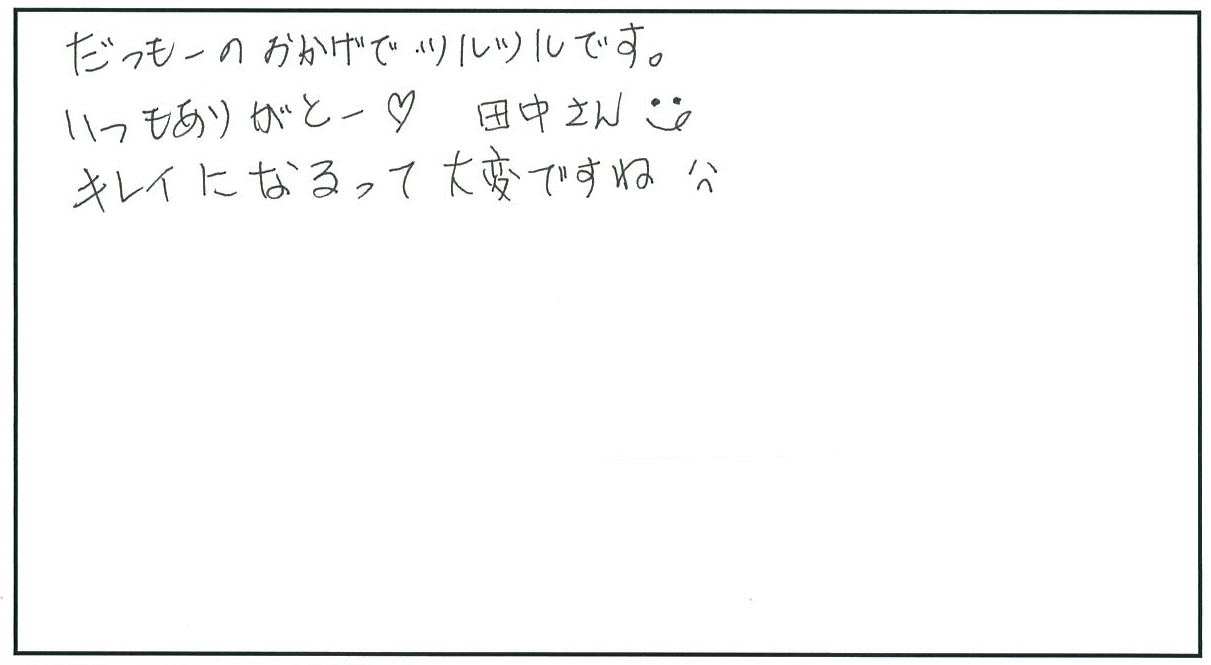 だつもーのおかげでツルツルです。
いつもありがとー♡ 田中さん
キレイになるって大変ですね